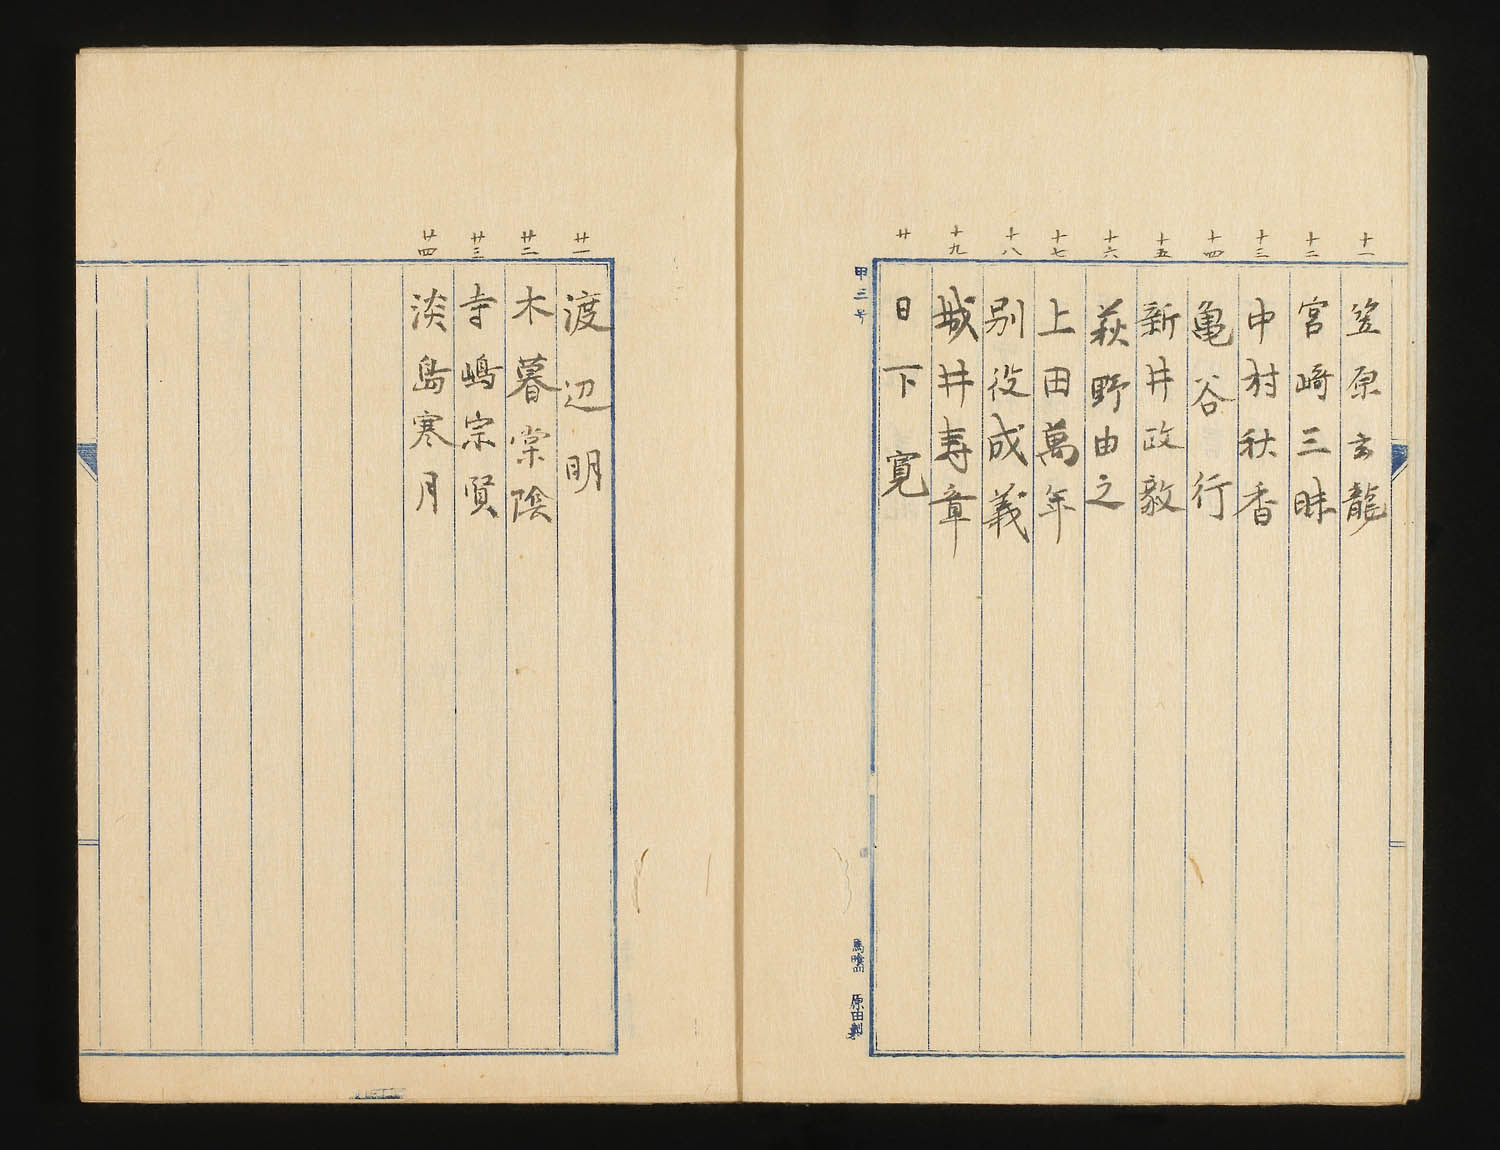 十一 笠原玄龍
十二 宮崎三昧
十三 中村秋香
十四 亀谷行
十五 新井政毅
十六 萩野由之
十七 上田萬年
十八 別役成義
十九 城井寿章
廿 日下寛
甲三号
原田製
廿一 渡辺明
廿二 木暮棠陰
廿三 寺嶋宗賢
廿四 淡島寒月